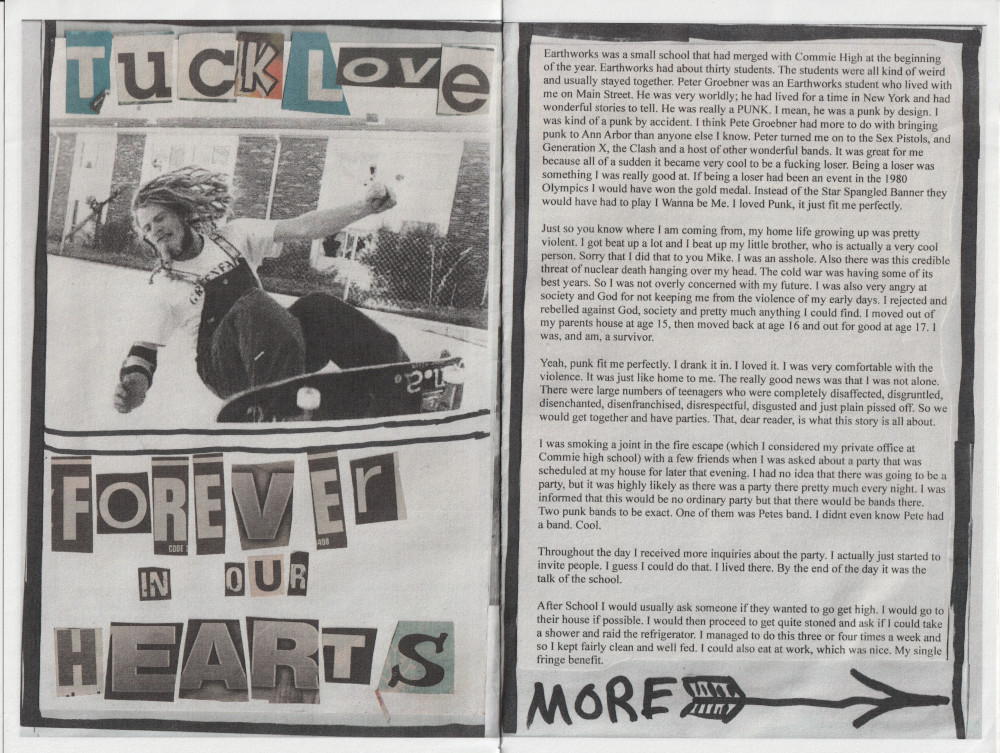 TUCK LOVe
n.2.
FOREVEr
CODE
498
IN OUR
HEARTS
Earthworks was a small school that had merged with Commie High at the beginning
of the year. Earthworks had about thirty students. The students were all kind of weird
and usually stayed together. Peter Groebner was an Earthworks student who lived with
me on Main Street. He was very worldly; he had lived for a time in New York and had
wonderful stories to tell. He was really a PUNK. I mean, he was a punk by design. I
was kind of a punk by accident. I think Pete Groebner had more to do with bringing
punk to Ann Arbor than anyone else I know. Peter turned me on to the Sex Pistols, and
Generation X, the Clash and a host of other wonderful bands. It was great for me
because all of a sudden it became very cool to be a fucking loser. Being a loser was
something I was really good at. If being a loser had been an event in the 1980
Olympics I would have won the gold medal. Instead of the Star Spangled Banner they
would have had to play I Wanna be Me. I loved Punk, it just fit me perfectly.
Just so you know where I am coming from, my home life growing up was pretty
violent. I got beat up a lot and I beat up my little brother, who is actually a very cool
person. Sorry that I did that to you Mike. I was an asshole. Also there was this credible
threat of nuclear death hanging over my head. The cold war was having some of its
best years. So I was not overly concerned with my future. I was also very angry at
society and God for not keeping me from the violence of my early days. I rejected and
rebelled against God, society and pretty much anything I could find. I moved out of
my parents house at age 15, then moved back at age 16 and out for good at age 17. I
was, and am, a survivor.
Yeah, punk fit me perfectly. I drank it in. I loved it. I was very comfortable with the
violence. It was just like home to me. The really good news was that I was not alone.
There were large numbers of teenagers who were completely disaffected, disgruntled,
disenchanted, disenfranchised, disrespectful, disgusted and just plain pissed off. So we
would get together and have parties. That, dear reader, is what this story is all about.
I was smoking a joint in the fire escape (which I considered my private office at
Commie high school) with a few friends when I was asked about a party that was
scheduled at my house for later that evening. I had no idea that there was going to be a
party, but it was highly likely as there was a party there pretty much every night. I was
informed that this would be no ordinary party but that there would be bands there.
Two punk bands to be exact. One of them was Petes band. I didnt even know Pete had
a band. Cool.
Throughout the day I received more inquiries about the party. I actually just started to
invite people. I guess I could do that. I lived there. By the end of the day it was the
talk of the school.
After School I would usually ask someone if they wanted to go get high. I would go to
their house if possible. I would then proceed to get quite stoned and ask if I could take
a shower and raid the refrigerator. I managed to do this three or four times a week and
so I kept fairly clean and well fed. I could also eat at work, which was nice. My single
fringe benefit.
MORE